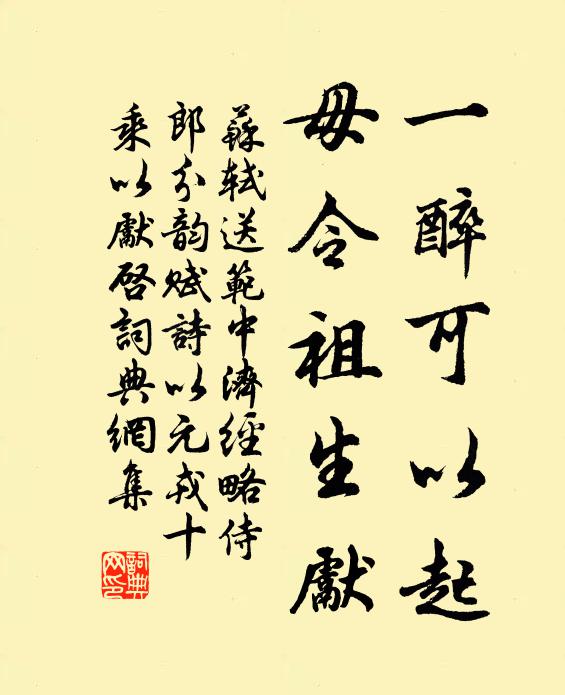 一醉可以起
毋令祖生獻
蘇軾送範中濟經略侍
郎分韵賦詩以元戎十
乘以獻啓詞典網集
詞典网印